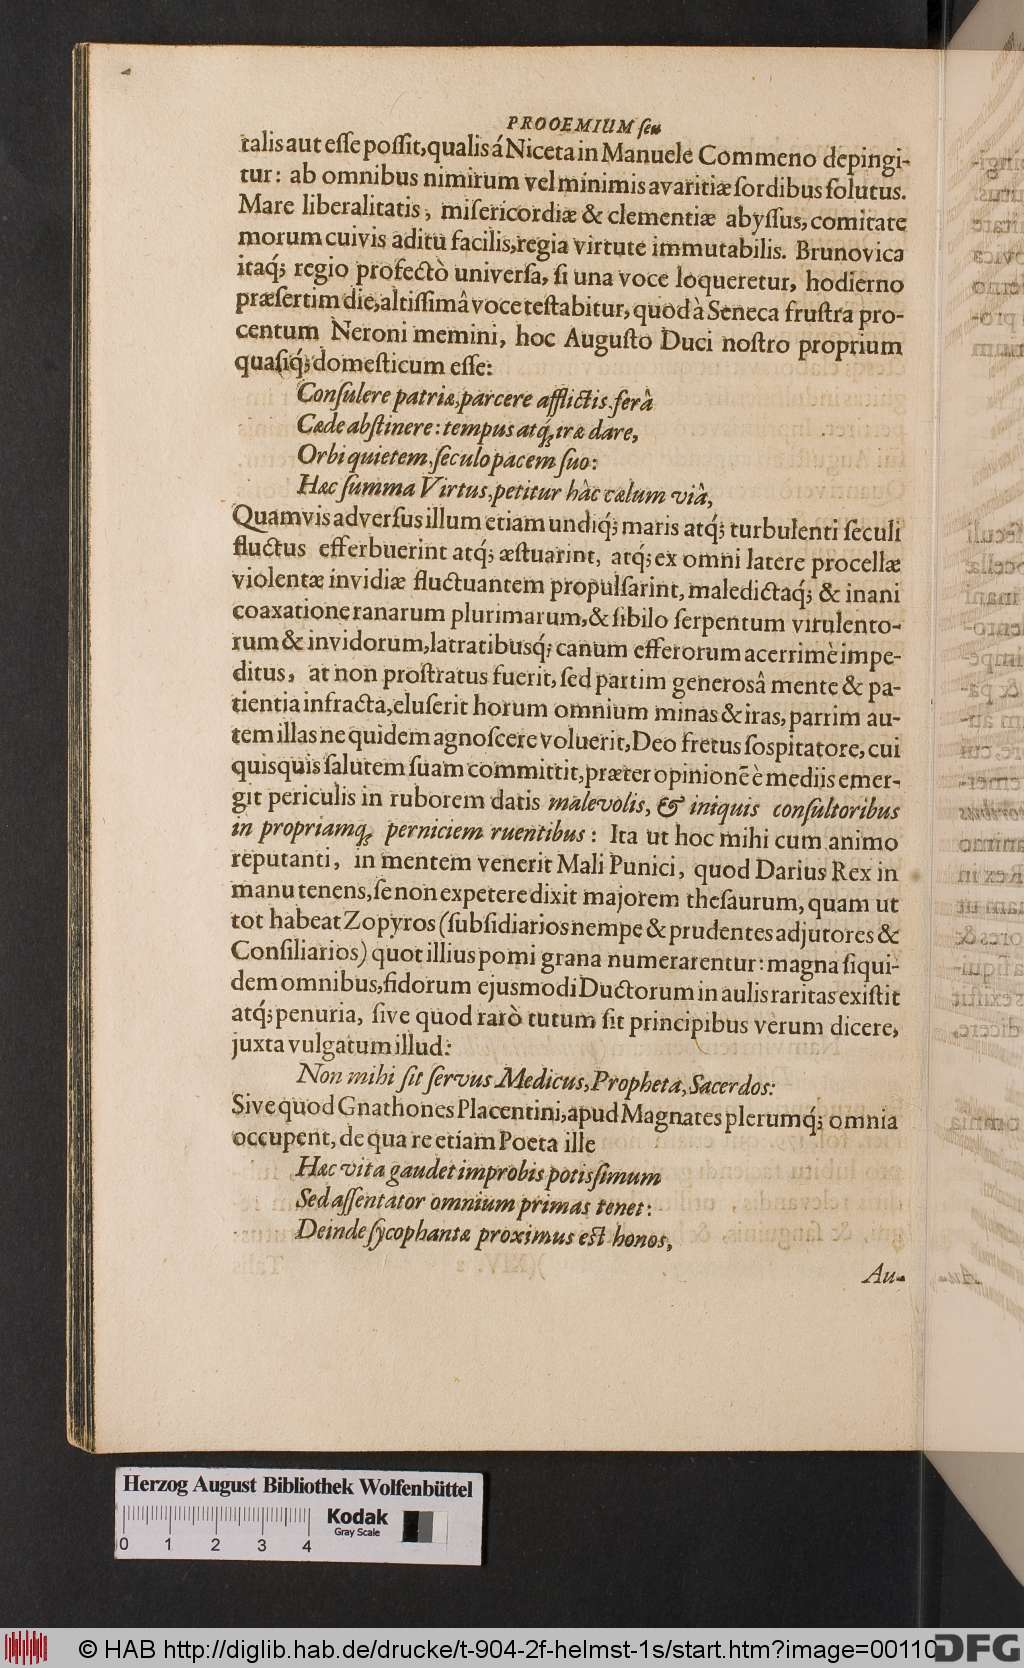 PROOEMIUM ſeu
talis aut eſſe poſſit, qualis á Niceta in Manuele Commeno depingi-
tur: ab omnibus nimirum vel minimis avaritiæ ſordibus ſolutus.
Mare liberalitatis, miſericordiæ & clementiæ abyſſus, comitate
morum cuivis aditu facilis, regia virtute immutabilis. Brunovica
itaq́; regio profectò univerſa, ſi una voce loqueretur, hodierno
præſertim die, altiſſimâ voce teſtabitur, quod à Seneca fruſtra pro-
centum Neroni memini, hoc Auguſto Duci noſtro proprium
quaſiq́; domeſticum eſſe:
Conſulere patriæ, parcere afflictis, ferâ
Cæde abſtinere: tempus atq́; iræ dare,
Orbi quietem, ſeculo pacem ſuo:
Hæc ſumma Virtus, petitur hàc cælum viâ,
Quamvis adverſus illum etiam undiq́; maris atq́; turbulenti ſeculi
fluctus efferbuerint atq́; æſtuarint, atq́; ex omni latere procellæ
violentæ invidiæ fluctuantem propulſarint, maledictaq́; & inani
coaxatione ranarum plurimarum, & ſibilo ſerpentum virulento-
rum & invidorum, latratibusq́; canum efferorum acerrimè impe-
ditus, at non proſtratus fuerit, ſed partim generosâ mente & pa-
tientia infracta, eluſerit horum omnium minas & iras, parrim au-
tem illas ne quidem agnoſcere voluerit, Deo fretus ſoſpitatore, cui
quisquis ſalutem ſuam committit, præter opinionē è mediis emer-
git periculis in ruborem datis malevolis, & iniquis conſultoribus
in propriamq́; perniciem ruentibus: Ita ut hoc mihi cum animo
reputanti, in mentem venerit Mali Punici, quod Darius Rex in
manu tenens, ſe non expetere dixit majorem theſaurum, quam ut
tot habeat Zopyros (ſubſidiarios nempe & prudentes adjutores &
Conſiliarios) quot illius pomi grana numerarentur: magna ſiqui-
dem omnibus, fidorum ejusmodi Ductorum in aulis raritas exiſtit
atq́; penuria, ſive quod rarò tutum ſit principibus verum dicere,
juxta vulgatum illud:
Non mihi ſit ſervus Medicus, Propheta, Sacerdos:
Sive quod Gnathones Placentini, apud Magnates plerumq́; omnia
occupent, de qua re etiam Poeta ille
Hæc vita gaudet improbis potisſimum
Sed aſſentator omnium primas tenet:
Deinde ſycophantæ proximus eſt honos,
Au-
Herzog August Bibliothek Wolfenbüttel
Kodak
Gray Scale
0 1 2 3 4
© HAB http://diglib.hab.de/drucke/t-904-2f-helmst-1s/start.htm?image=00110
DFG